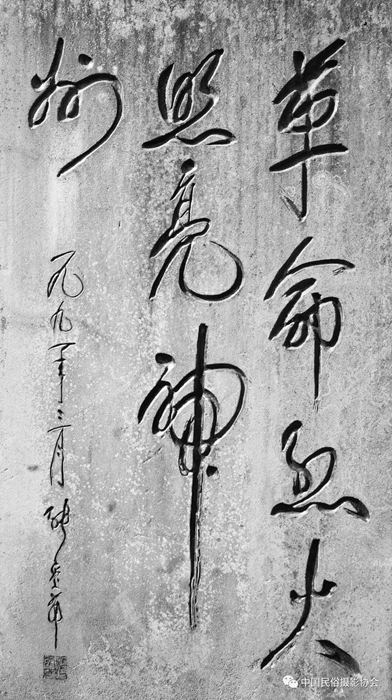 革命烈火
照亮神
州
一九九一年三月 张爱萍
中国民俗摄影协会